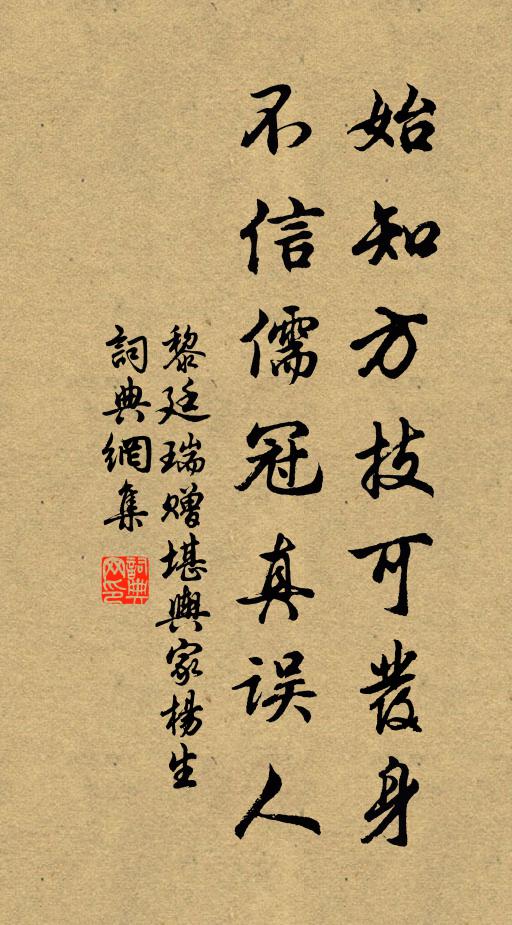 始知方技可發身
不信儒冠真误人
黎廷瑞贈堪輿家楊生
詞典網集
詞典網印